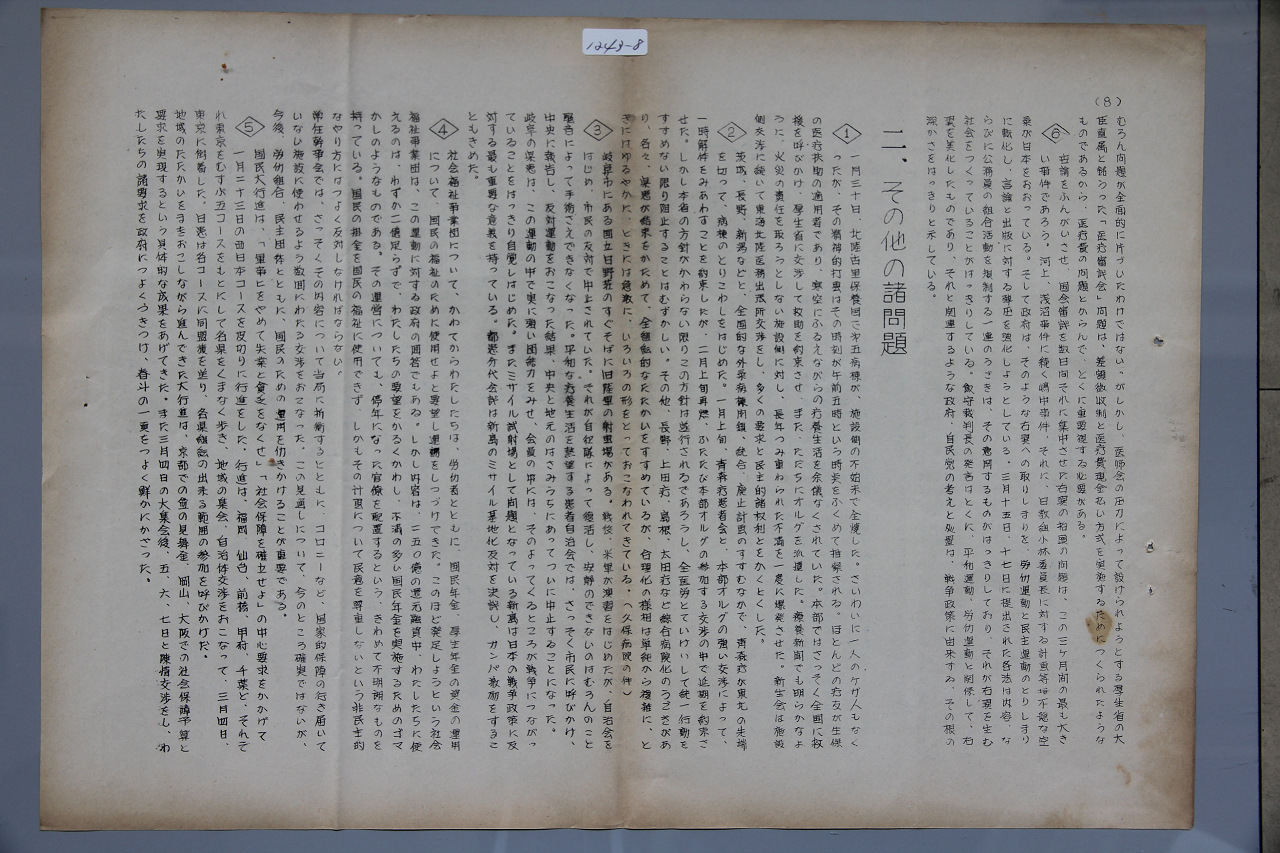 1243-8
(8)
むろん問題が全面的に片づいたわけではない。がしかし、医師会の圧力によって設けられようとする厚生省の大
臣直属と銘うった「医療審議会」問題は、差額徴収制と医療費現金払い方式を実施するためにつくられたような
ものであるから、医療費の問題とからんで、とくに重要視する必要がある。
⑥ 世論をふんがいさせ、国会審議を数日間それに集中させた右翼の抬頭の問題は、この三ヶ月間の最も大き
い事件であろう。河上、浅沼事件に続く嶋中事件、それに、日教組小林委員長に対する計画等
雲が日本をおおっている。そして政府は、そのような右翼への取りしまりを、労働運動と民主運動のとりしまり
に転化し、言論と出版に対する弾圧を強化しようとしている。三月十五日、十七日に提出された各法は内容、な
らびに公務員の組合活動を規制する一連のうごきは、その意図するものがはっきりしており、それが右翼を生む
社会をつくっていることがはっきりしている。飯守裁判長の発言はとくに、平和運動、労働運動と関係して、右
翼を美化したものであり、それと関連するような政府、自民党の考えと処置は、戦争政策に由来する、その根の
深かさをはっきりと示している。
二、その他の諸問題
① 一月三十日、北陸古里保養園で第五病棟が、施設側の不始末で全焼した。さいわいに一人のケガ人もなく
ったが、その精神的打撃はその時刻が午前五時という時英をふくめて推察される。ほとんどの療友が生保
の医療扶助の適用者であり、寒空にふるえながらの療養生活を余儀なくされていた。本部ではさっそく全国に救
援を呼びかけ、厚生省に交渉して救助を約束させ、また、ただちにオルグを派遣した。療養新聞でも明らかなよ
うに、火災の責任を取ろうとしない施設側に対し、長年つみ重ねられた不満を一度に爆発させた。新生会は施設
側交渉に続いて東海北陸医務出張所交渉をし、多くの要求と民主的諸权利とをかくとくした。
② 茨城、長野、新潟などと、全国的な外来病棟閉鎖、統合、廃止計画のすすむなかで、青森療が東北の先端
を切って、病棟のとりこわしをはじめた。一月上旬、青森療患者会と、本部オルグの強い交渉によって、
一時解体をみあわすことを約束したが、二月上旬再燃、ふたたび本部オルグの参加する交渉の中で延期を約束さ
せた。しかし本省の方針がかわらない限りこの方針は並行されるであろうし、全医労とていけいして統一行動を
すすめない限り阻止することはむずかしい。その他、長野、上田療、島根、太田療など綜合病院化のうごきがあ
り、各々、患者が結束をかためて、全組織的なたたかいをすすめているが、合理化の様相は単純から複雑に、と
きにはゆるやかに、ときには急激に、いろいろの形をとっておこなわれてきている。(久保病院の件)
③ 岐阜市にある国立日野荘のすぐそばに旧陸軍の射撃場がある。戦後、米軍が演習をはじめたが、自治会を
はじめ、市民の反対で中止されていた。それが自衛隊によって復活し、安静のできないのはむろんのこと
騒音によって手術さえできなくなった。平和な療養生活を熱望する患者自治会では、さっそく市民に呼びかけ、
中央に報告し、反対運動をおこなった結果、中央と地元のはさみうちにあってついに中止することになった。
岐阜の患者は、この運動の中で実に強い団結力をみせ、会員の中には、そのよってくるところが戦争につながっ
ていることをはっきり自覚しはじめた。またミサイル試射場として問題となっている新島は日本の戦争政策に反
対する最も重要な意義を持っている。都患分代会議は新島のミサイル基地化反対を決議し、カンパ激励をするこ
ともきめた。
④ 社会福祉事業団について、かねてからわたしたちは、労働者とともに、国民年金、厚生年金の資金の運用
について、国民の福祉のために使用せよと要望し運動をしつづけてきた。このほど発足しようという社会
福祉事業団は、この運動に対する政府の回答でもある。しかし内容は、二五〇億の還元融資中、わたしたちに使
えるのは、わずか二億足らずで、わたしたちの要望をかるくかわし、不満の多い国民年金を実施するためのゴマ
かしのようなものである。その運営についても、停年になった官僚を配置するという、きわめて不明朗なものを
持っている。国民の掛金を国民の福祉に使用できず、しかもその計画について民意を尊重しないという非民主的
なやり方にはつよく反対しなければならない。
常任幹事会では、さっそくその内容について当局に折衝するとともに、コロニーなど、国家的保障の行き届いて
いない施設に使わせるよう数回にわたる交渉をおこなった。この見通しについて、今のところ確実ではないが、
今後、労働組合、民主団体とともに、国民のための運用を仂きかけることが重要である。
⑤ 国民大行進は、「軍事ヒをやめて失業と貧乏をなくせ」「社会保障を確立せよ」の中心要求をかかげて
一月二十三日の西日本コースを皮切りに行進をした。行進は、福岡、仙台、前橋、甲府、千葉と、それぞ
れ東京をむすぶ五コースをもとにして各県をくまなく歩き、地域の集会、自治体交渉をおこなって、三月四日、
東京に到着した。日患は各コースに同盟後を送り、各県組織の出来る範囲の参加を呼びかけた。
地域のたたかいをまきおこしながら進んできた大行進は、京都での患の見舞金、岡山、大阪での社会保障予算と
要求を実現するという具体的な成果をあげてきた。また三月四日の大集会後、五、六、七日と陳情交渉をし、わ
たしたちの諸要求を政府につよくうきつけ、春斗の一頁をつよく鮮かにかざった。